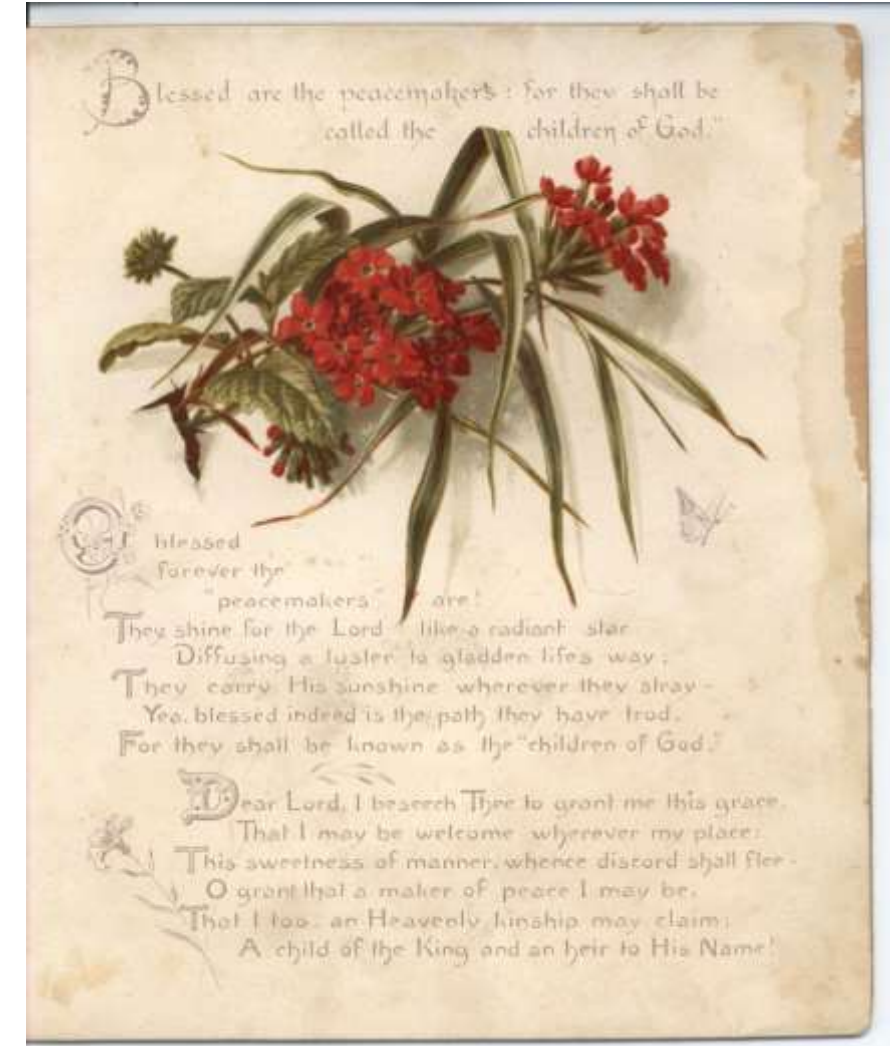 Blessed are the peacemakers : for they shall be
called the children of God."
O blessed
forever the
"peacemakers" are!
They shine for the Lord like a radiant star
Diffusing a luster to gladden lifes way;
They carry His sunshine wherever they stray -
Yea, blessed indeed is the path they have trod,
For they shall be known as the "children of God."
Dear Lord, I beseech Thee to grant me this grace,
That I may be welcome wherever my place:
This sweetness of manner, whence discord shall flee -
O grant that a maker of peace I may be,
That I too, an Heavenly kinship may claim;
A child of the King and an heir to His Name!